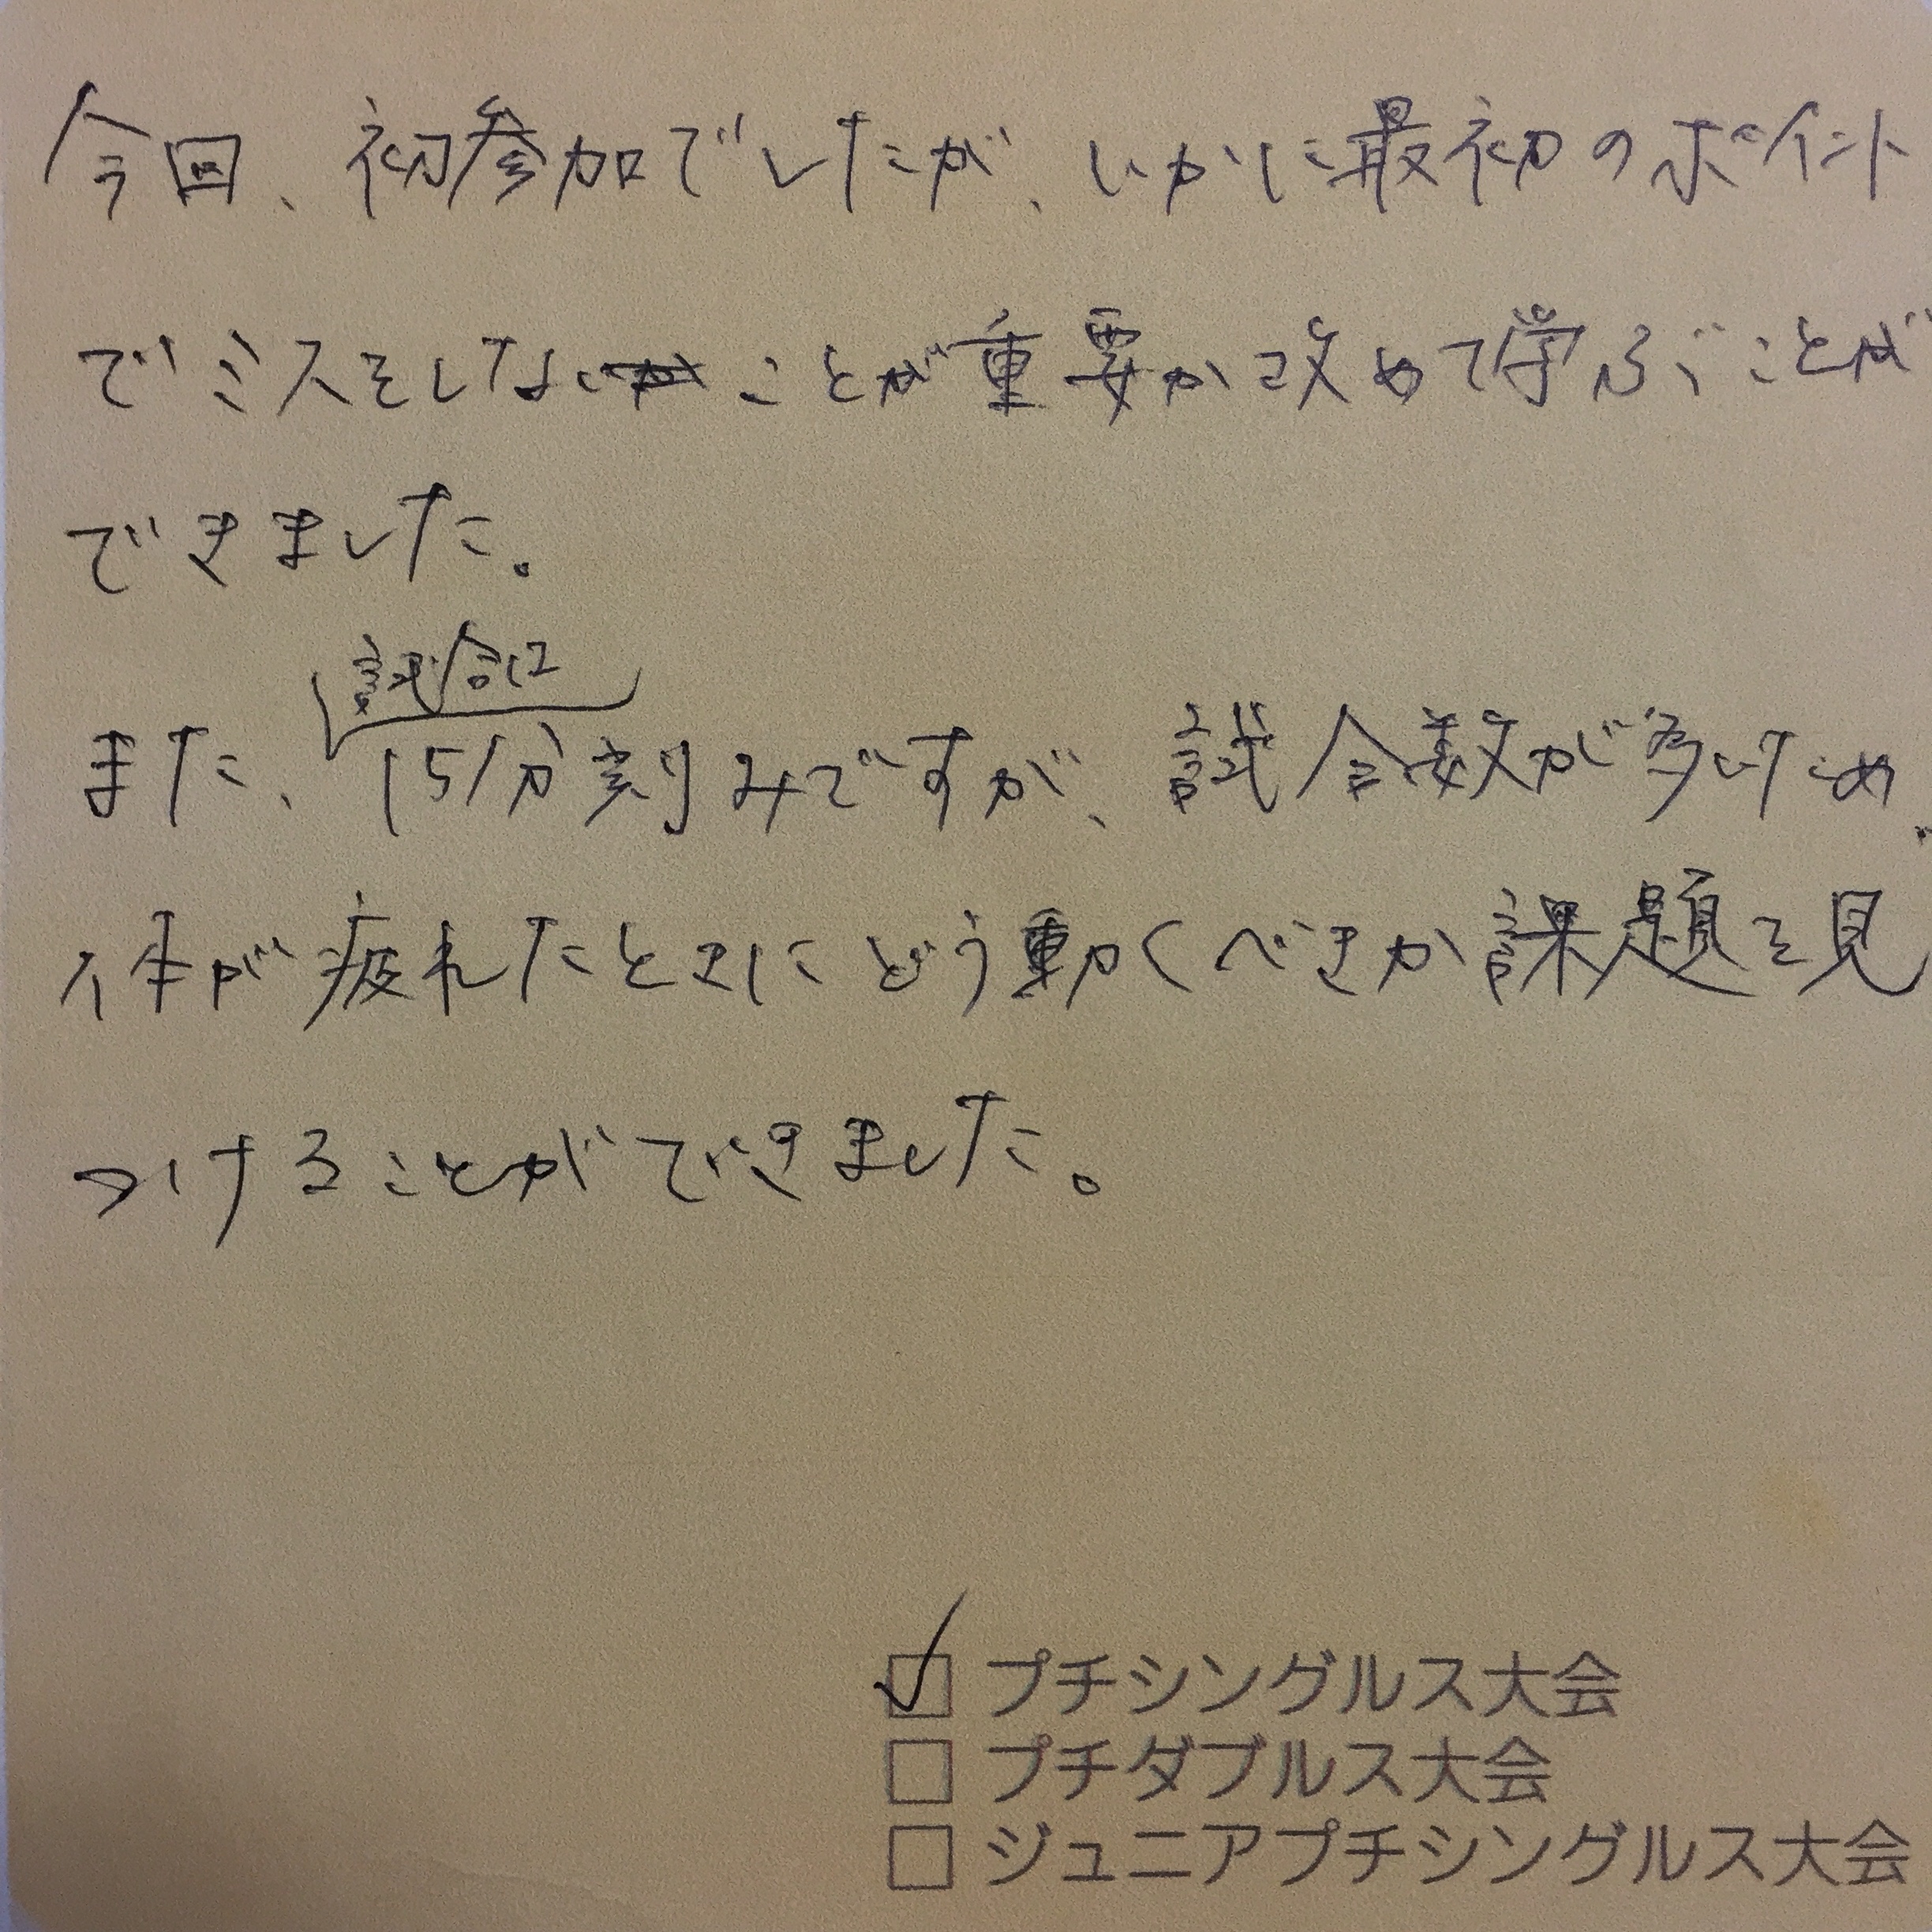 今回、初参加でしたが、いかに最初のポイント
でミスをしないことが重要か改めて学ぶことが
できました。
試合は
また、15分刻みですが、試合数が多いため、
体が疲れたときにどう動くべきか課題を見
つけることができました。
プチシングルス大会
プチダブルス大会
ジュニアプチシングルス大会